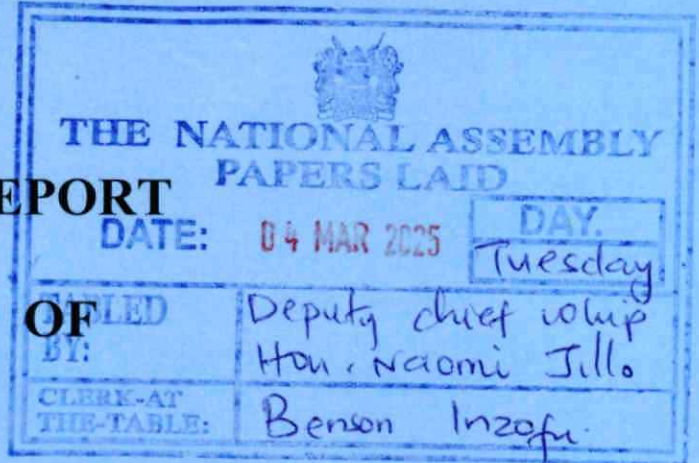 THE NATIONAL ASSEMBLY
PAPERS LAID
EPORT
DATE: 04 MAR 2025
DAY.
Tuesday
OF
TABLED BY:
Deputy chief whip
Hon. Naomi Jillo
CLERK-AT THE-TABLE:
Benson Inzofu